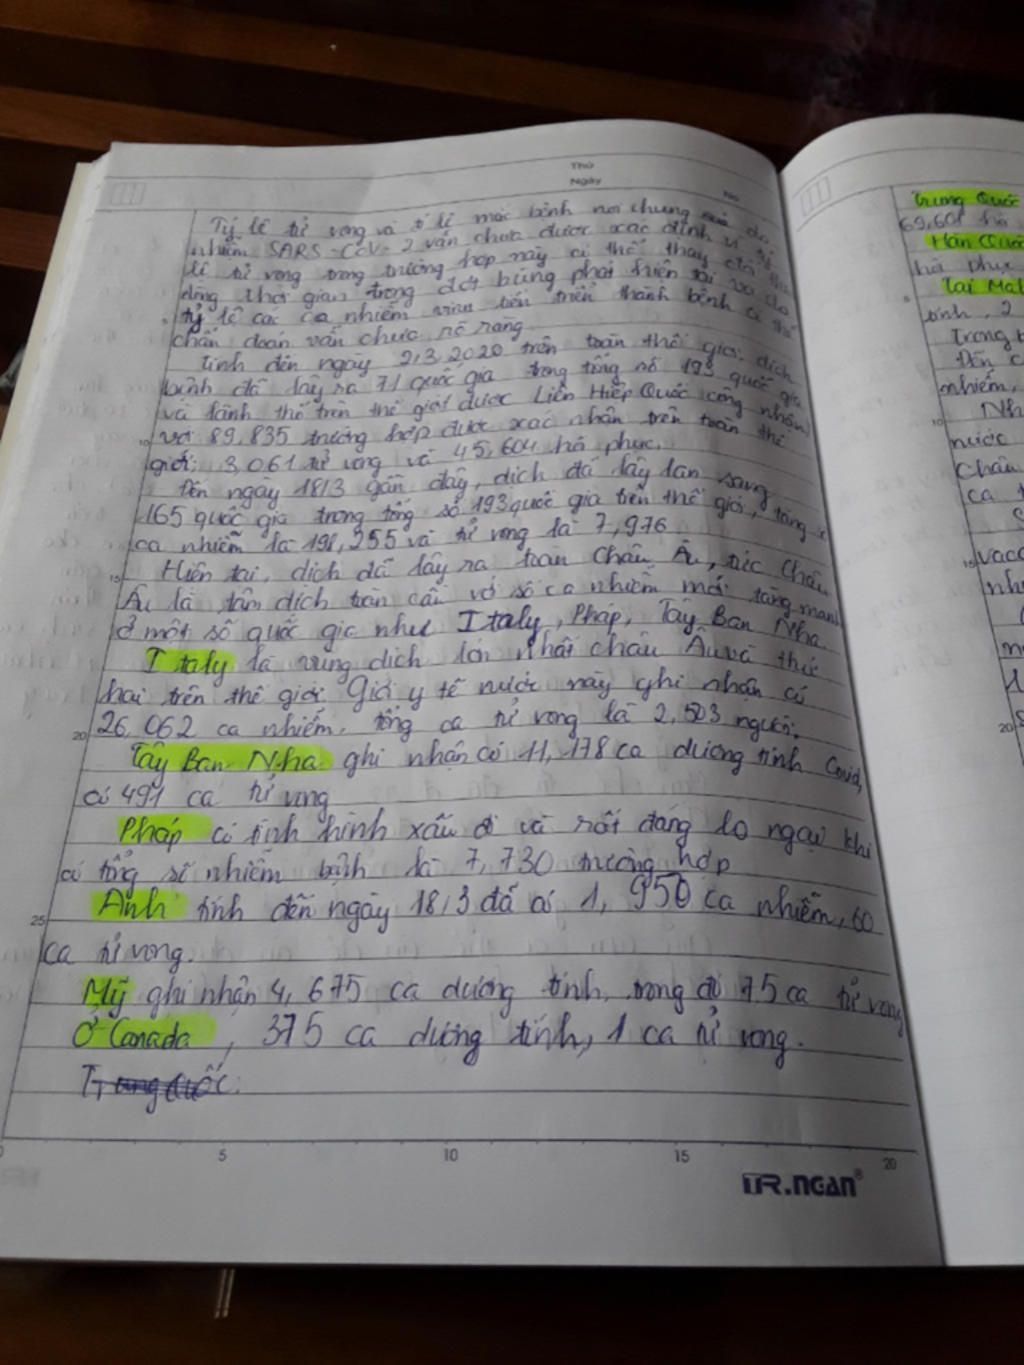 Thứ
Ngày
No
Tỷ lệ tử vong và tỉ lệ mắc bệnh nói chung do
nhiễm SARS-CoV-2 vẫn chưa được xác định vì tỷ
lệ tử vong trong trường hợp này có thể thay đổi theo
dòng thời gian trong đợt bùng phát hiện tại và do
tỷ lệ các ca nhiễm virus tiến triển thành bệnh có thể
chẩn đoán vẫn chưa rõ ràng
Tính đến ngày 2/3/2020 trên toàn thế giới, dịch
bệnh đã lây ra 71 quốc gia trong tổng số 193 quốc gia
và lãnh thổ trên thế giới được Liên Hiệp Quốc công nhận
với 89,835 trường hợp được xác nhận trên toàn thế
giới; 3,061 tử vong và 45,604 hồi phục.
Đến ngày 18/3 gần đây, dịch đã lây lan sang
165 quốc gia trong tổng số 193 quốc gia trên thế giới, tăng
ca nhiễm là 198,255 và tử vong là 7,976
Hiện tại, dịch đã lây ra toàn Châu Âu, tức Châu
Âu là tâm dịch toàn cầu với số ca nhiễm mới tăng mạnh
ở một số quốc gia như Italy, Pháp, Tây Ban Nha.
Italy là vùng dịch lớn nhất châu Âu và thứ
hai trên thế giới. Giới y tế nước này ghi nhận có
26,062 ca nhiễm, tổng ca tử vong là 2,503 người.
Tây Ban Nha ghi nhận có 11,178 ca dương tính Covid,
có 491 ca tử vong
Pháp có tình hình xấu đi và rất đáng lo ngại khi
có tổng số nhiễm bệnh là 7,730 trường hợp
Anh tính đến ngày 18/3 đã có 1,950 ca nhiễm, 60
ca tử vong.
Mỹ ghi nhận 4,675 ca dương tính, trong đó 75 ca tử vong
Ở Canada, 375 ca dương tính, 1 ca tử vong.
Trung Quốc:
5 10 15 20
TR.NGAN®
Trung Quốc
69,601 hồi
Hàn Quốc
hồi phục
Tại Mal
tính, 2
Trong
Đến c
nhiễm,
Nh
nước
Châu
ca t
vacc
nh